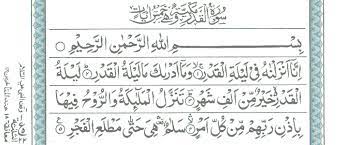 سُورَةُ الْقَدْرِ مَكِّيَّةٌ وَّهِيَ خَمْسُ اٰيَاتٍ
بِسْمِ اللهِ الرَّحْمٰنِ الرَّحِيْمِ
اِنَّآ اَنْزَلْنٰهُ فِيْ لَيْلَةِ الْقَدْرِ وَمَآ اَدْرٰىكَ مَا لَيْلَةُ الْقَدْرِ لَيْلَةُ
الْقَدْرِ خَيْرٌ مِّنْ اَلْفِ شَهْرٍ تَنَزَّلُ الْمَلٰٓئِكَةُ وَالرُّوْحُ فِيْهَا
بِاِذْنِ رَبِّهِمْ مِّنْ كُلِّ اَمْرٍ سَلٰمٌ هِيَ حَتّٰى مَطْلَعِ الْفَجْرِ